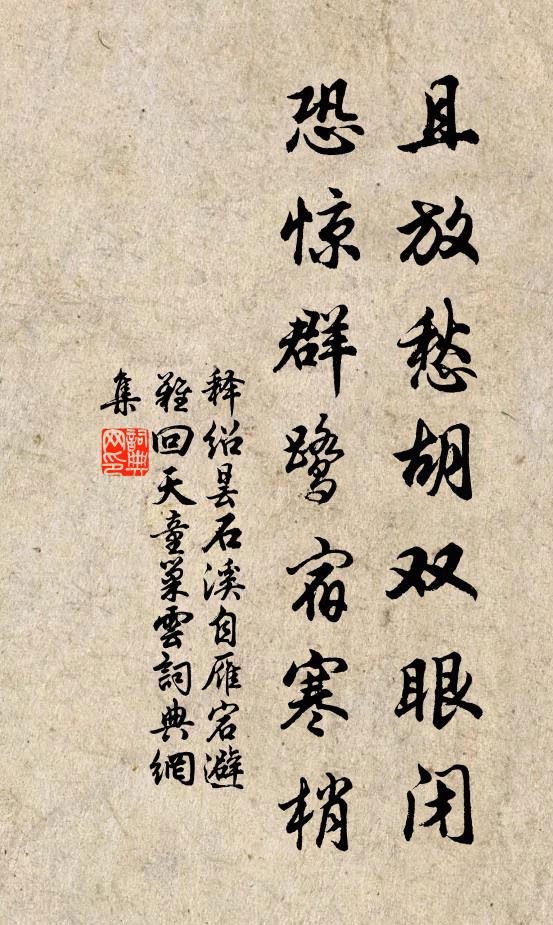 且放愁胡双眼闭
恐惊群鹭宿寒梢
释绍昙石溪自雁宕避
难回天童巢雲詞典網
集
詞典网印